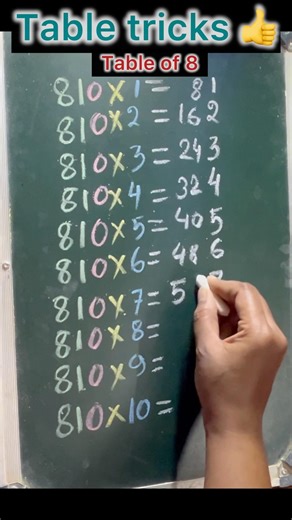 Table tricks 👍
Table of 8
810×1= 81
810×2=162
810×3=243
810×4=324
810×5=405
810×6=486
810×7=5
810×8=
810×9=
810×10=